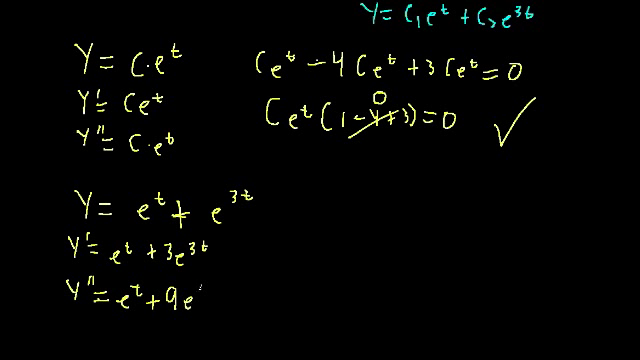 Y = C₁eᵗ + C₂e³ᵗ
Y = C·eᵗ
Y' = Ceᵗ
Y'' = C·eᵗ
Ceᵗ - 4Ceᵗ + 3Ceᵗ = 0
0
Ceᵗ(1-4+3) = 0 ✓
Y = eᵗ + e³ᵗ
Y' = eᵗ + 3e³ᵗ
Y'' = eᵗ + 9e